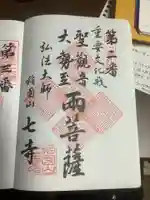 第二番
重要文化財
聖観音
大勢至
両菩薩
弘法大師
稲園山
七寺
第三番